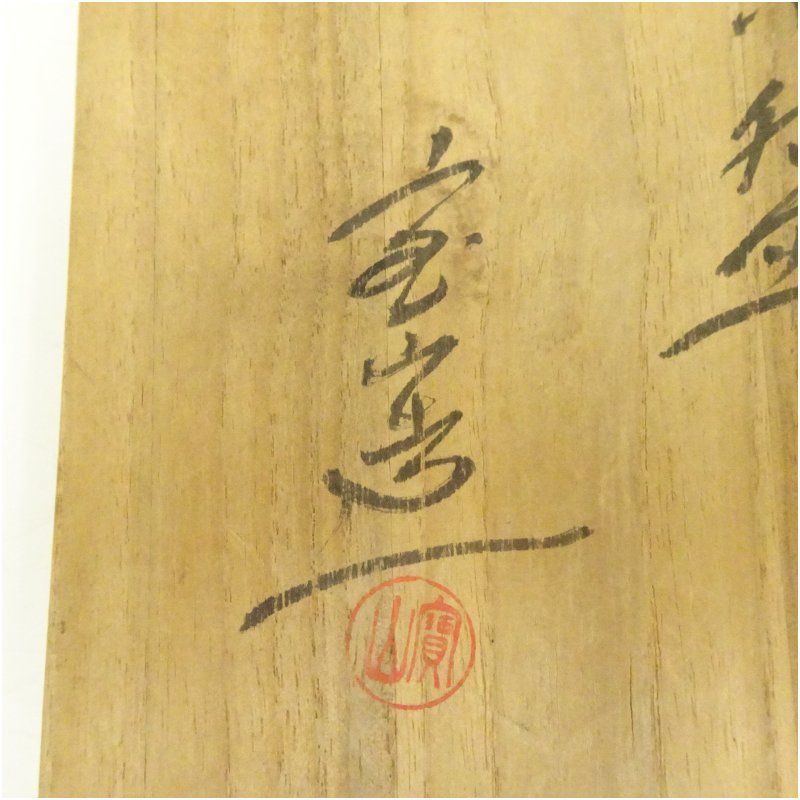 宝山造
寶山